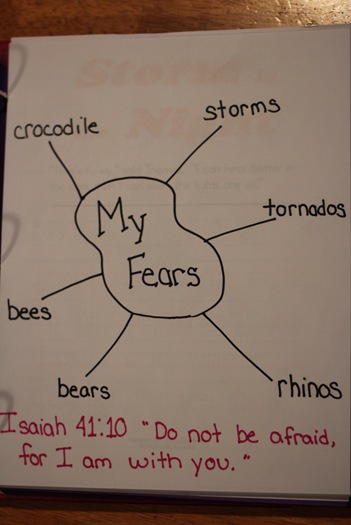 crocodile
storms
My
Fears
tornados
bees
bears
rhinos
Isaiah 41:10 "Do not be afraid,
for I am with you."